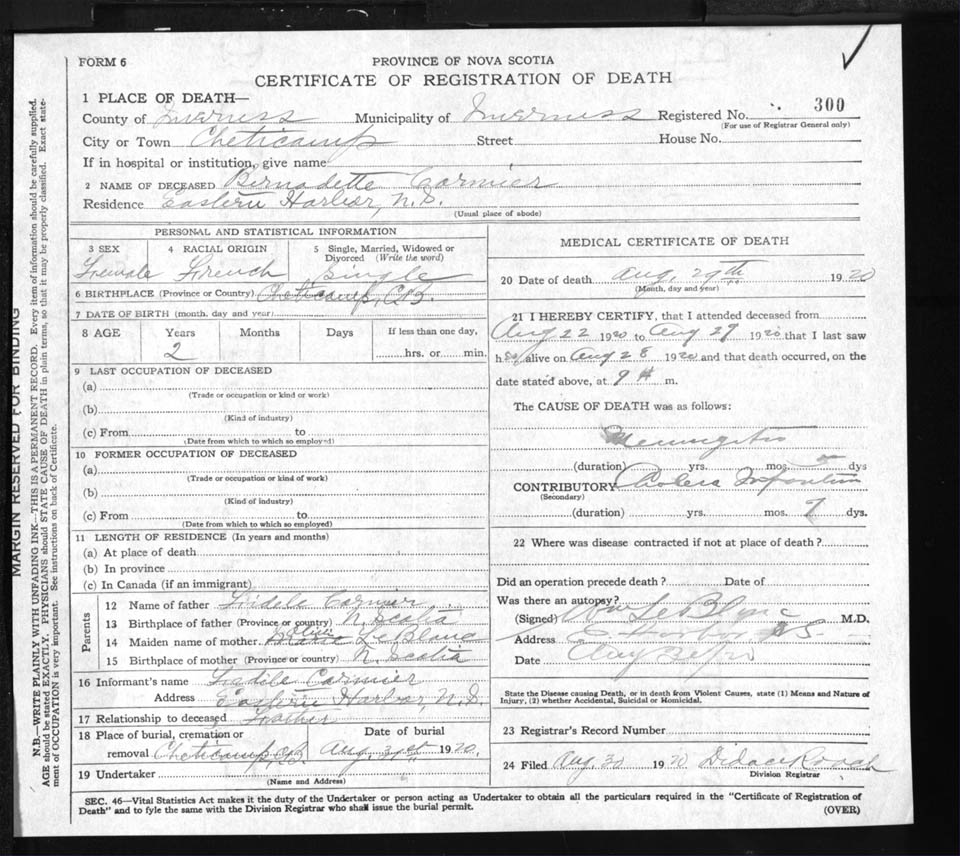 FORM 6
PROVINCE OF NOVA SCOTIA
CERTIFICATE OF REGISTRATION OF DEATH
1 PLACE OF DEATH—
300
County of Inverness Municipality of Inverness Registered No.
(For use of Registrar General only)
City or Town Cheticamp Street House No.
If in hospital or institution, give name
2 NAME OF DECEASED Bernadette Cormier
Residence Eastern Harbor, N.S.
(Usual place of abode)
PERSONAL AND STATISTICAL INFORMATION
3 SEX 4 RACIAL ORIGIN 5 Single, Married, Widowed or Divorced (Write the word)
Female French Single
6 BIRTHPLACE (Province or Country) Cheticamp, C.B.
7 DATE OF BIRTH (month, day and year)
8 AGE Years Months Days If less than one day,
2 hrs. or min.
9 LAST OCCUPATION OF DECEASED
(a)
(Trade or occupation or kind or work)
(b)
(Kind of industry)
(c) From to
(Date from which to which so employed)
10 FORMER OCCUPATION OF DECEASED
(a)
(Trade or occupation or kind of work)
(b)
(Kind of industry)
(c) From to
(Date from which to which so employed)
11 LENGTH OF RESIDENCE (In years and months)
(a) At place of death
(b) In province
(c) In Canada (if an immigrant)
Parents
12 Name of father Fidele Cormier
13 Birthplace of father (Province or country) N. Scotia
14 Maiden name of mother LeBlanc
15 Birthplace of mother (Province or country) N. Scotia
16 Informant's name Fidele Cormier
Address Eastern Harbor, N.S.
17 Relationship to deceased Father
18 Place of burial, cremation or Date of burial
removal Cheticamp, C.B. Aug. 31st 1920.
19 Undertaker
(Name and Address)
MEDICAL CERTIFICATE OF DEATH
20 Date of death Aug. 29th 1920
(Month, day and year)
21 I HEREBY CERTIFY, that I attended deceased from
Aug 22 1920 to Aug 29 1920 that I last saw
her alive on Aug 28 1920 and that death occurred, on the
date stated above, at 9 A m.
The CAUSE OF DEATH was as follows:
Meningitis
(duration) yrs. mos. 5 dys
CONTRIBUTORY Cholera Infantum
(Secondary)
(duration) yrs. mos. 7 dys.
22 Where was disease contracted if not at place of death?
Did an operation precede death? Date of
Was there an autopsy?
(Signed) Wm LeBlanc M.D.
Address E Harbor NS
Date Aug
State the Disease causing Death, or in death from Violent Causes, state (1) Means and Nature of
Injury, (2) whether Accidental, Suicidal or Homicidal.
23 Registrar's Record Number
24 Filed Aug. 30 1920 Didace Roach
Division Registrar
SEC. 46—Vital Statistics Act makes it the duty of the Undertaker or person acting as Undertaker to obtain all the particulars required in the "Certificate of Registration of
Death" and to fyle the same with the Division Registrar who shall issue the burial permit.
(OVER)
MARGIN RESERVED FOR BINDING
N.B.—WRITE PLAINLY WITH UNFADING INK—THIS IS A PERMANENT RECORD. Every item of information should be carefully supplied.
AGE should be stated EXACTLY. PHYSICIANS should STATE CAUSE OF DEATH in plain terms, so that it may be properly classified. Exact state-
ment of OCCUPATION is very important. See instructions on back of Certificate.